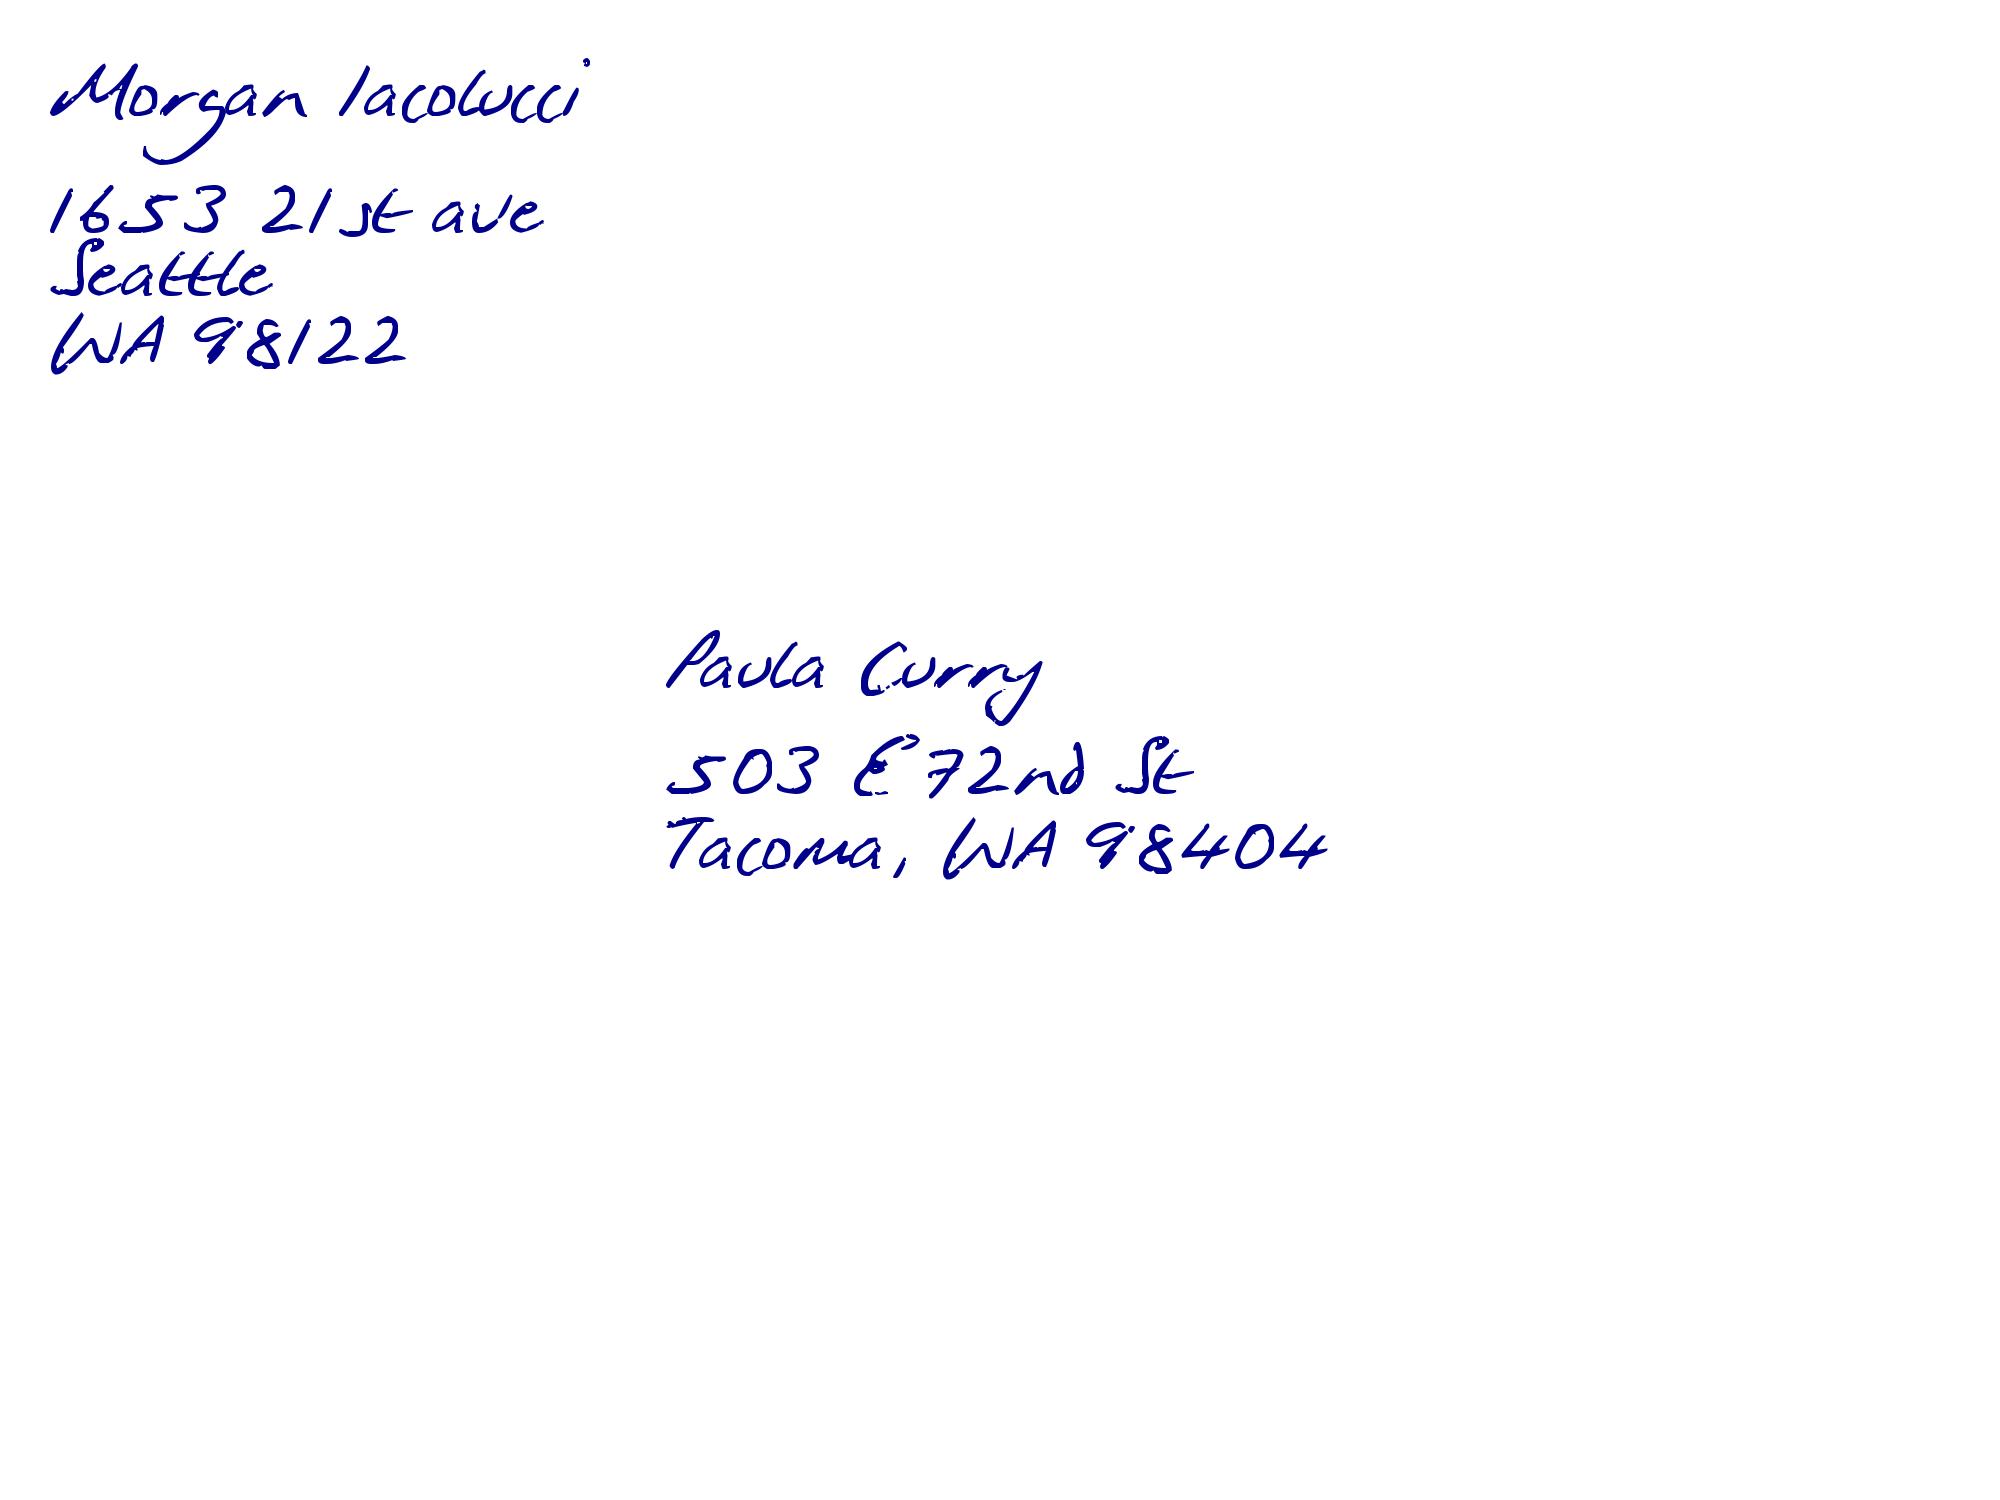 Morgan Iacolucci
1653 21st ave
Seattle
WA 98122
Paula Curry
503 E 72nd St
Tacoma, WA 98404